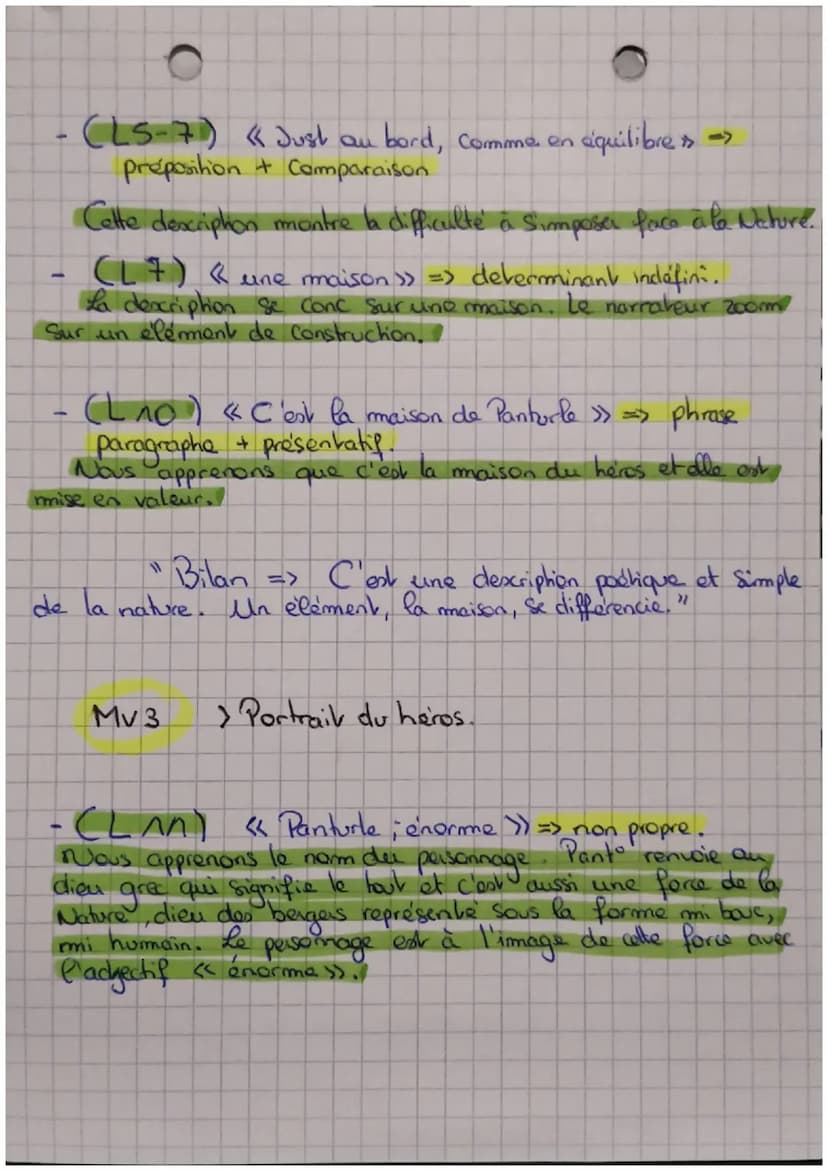 - (L5-7) « Just au bord, comme en équilibre » =>
préposition + Comparaison
Cette description montre la difficulté à s'imposer face à la Nature.
- (L7) « une maison » => determinant indéfini.
La description se conc sur une maison. Le narrateur zoom
sur un élément de construction.
- (L10) « C'est la maison de Panturle » => phrase
paragraphe + présentatif.
Nous apprenons que c'est la maison du héros et elle est
mise en valeur.
" Bilan => C'est une description poétique et simple
de la nature. Un élément, la maison, se différencie."
MV3 > Portrait du héros.
- (L11) « Panturle ; énorme » => non propre.
Nous apprenons le nom du personnage. Pant° renvoie au
dieu grec qui signifie le tout et c'est aussi une force de la
Nature, dieu des bergers représenté sous la forme mi bouc,
mi humain. Le personnage est à l'image de cette force avec
l'adjectif « énorme ».